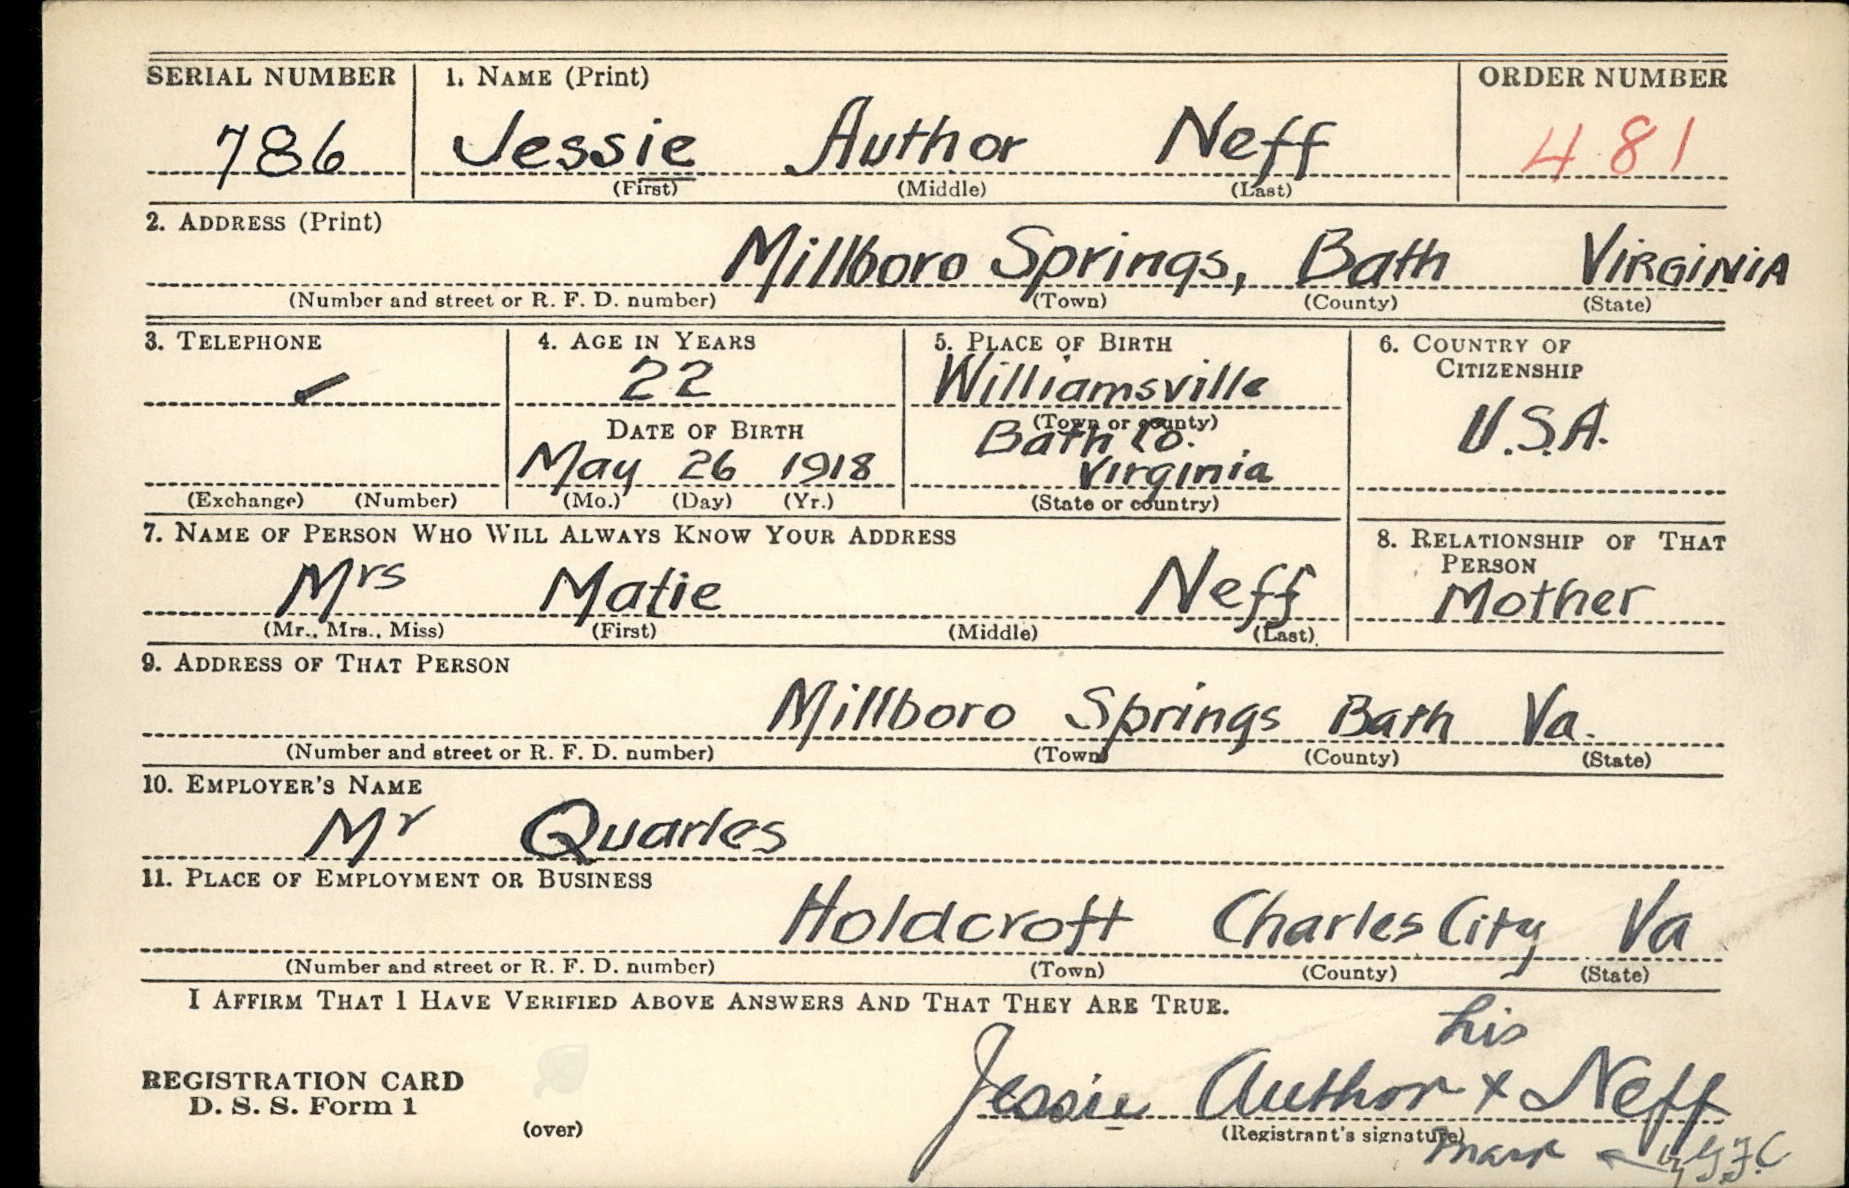 SERIAL NUMBER 1. NAME (Print) ORDER NUMBER
786 Jessie Author Neff 481
(First) (Middle) (Last)
2. ADDRESS (Print)
Millboro Springs, Bath VIRGINIA
(Number and street or R. F. D. number) (Town) (County) (State)
3. TELEPHONE 4. AGE IN YEARS 5. PLACE OF BIRTH 6. COUNTRY OF
CITIZENSHIP
22 Williamsville
(Town or county)
U.S.A.
DATE OF BIRTH Bath Co.
May 26 1918 Virginia
(Exchange) (Number) (Mo.) (Day) (Yr.) (State or country)
7. NAME OF PERSON WHO WILL ALWAYS KNOW YOUR ADDRESS 8. RELATIONSHIP OF THAT
PERSON
Mrs Matie Neff Mother
(Mr., Mrs., Miss) (First) (Middle) (Last)
9. ADDRESS OF THAT PERSON
Millboro Springs Bath Va.
(Number and street or R. F. D. number) (Town) (County) (State)
10. EMPLOYER'S NAME
Mr Quarles
11. PLACE OF EMPLOYMENT OR BUSINESS
Holdcroft Charles City Va
(Number and street or R. F. D. number) (Town) (County) (State)
I AFFIRM THAT I HAVE VERIFIED ABOVE ANSWERS AND THAT THEY ARE TRUE.
his
REGISTRATION CARD Jessie Author x Neff
D. S. S. Form 1
(over) (Registrant's signature)
mark by G.F.C